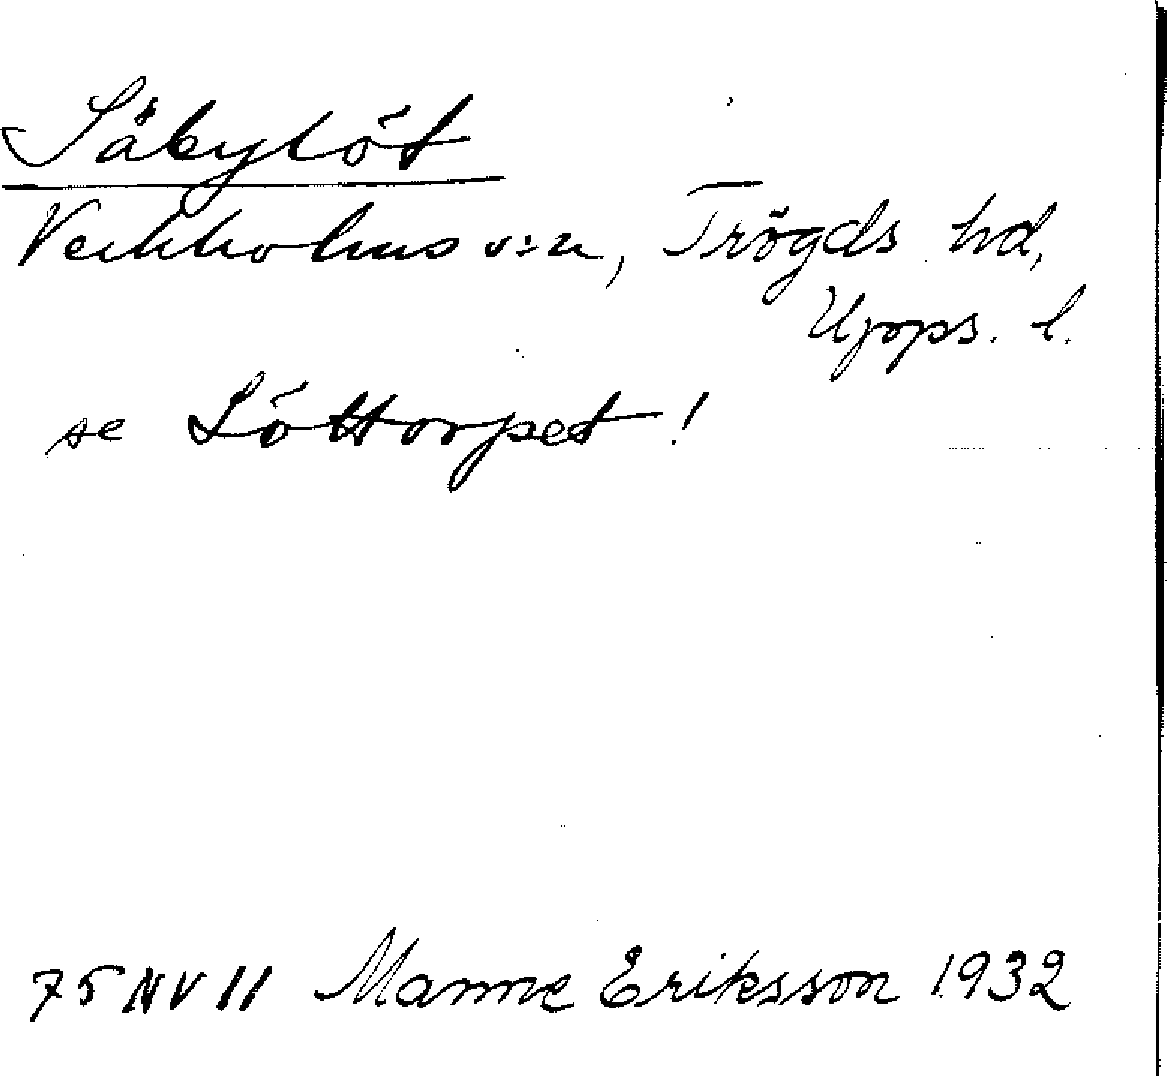 Säbylöt
Veckholms s:n, Trögds hd,
Upps. l.
se Löttorpet!
75 NV 11 Manne Eriksson 1932